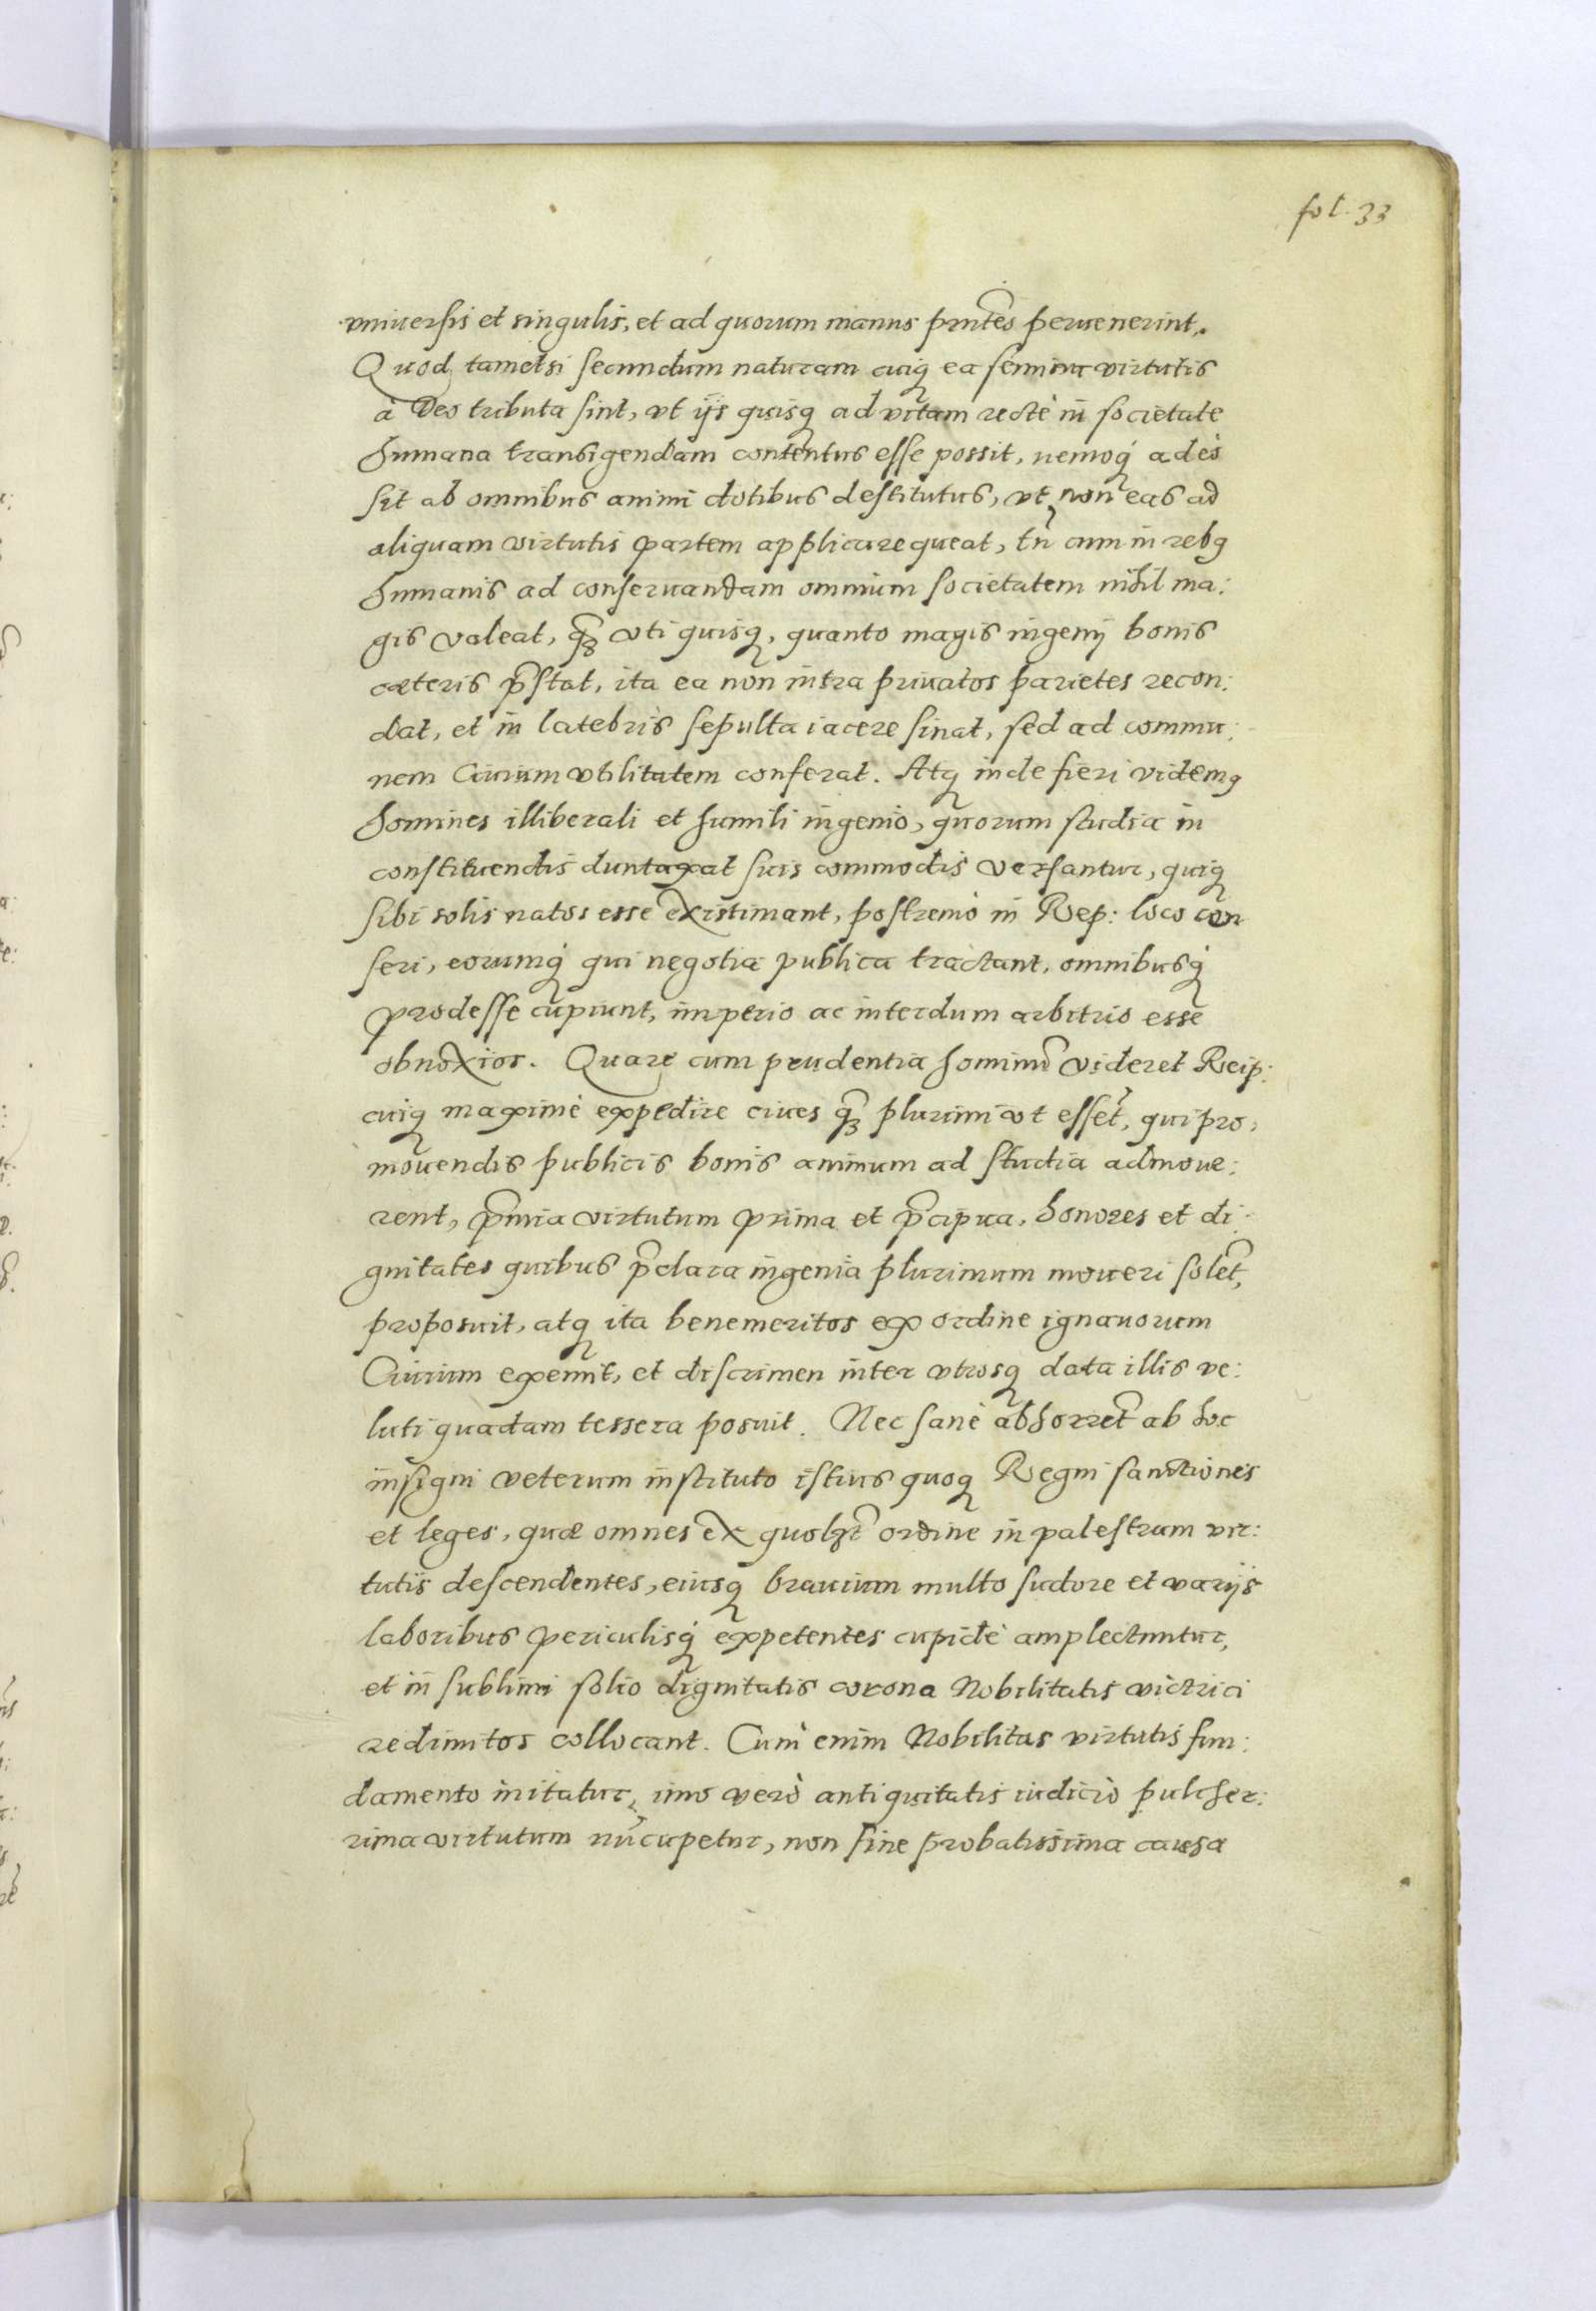 fol. 33
vniuersis et singulis, et ad quorum manus pñtes peruenerint.
Quod tametsi secundum naturam cuiq ea semina virtutis
à Deo tributa sint, vt ijs quisq ad vitam rectè in societate
humana transigendam contentus esse possit, nemoq adeò
sit ab omnibus animi dotibus destitutus, vt non eas ad
aliquam virtutis partem applicare queat, tñ cum in rebq
humanis ad conseruandam omnium societatem nihil ma:
gis valeat, q̃з vti quisq, quanto magis ingenij bonis
cæteris p̃stat, ita ea non intra priuatos parietes recon:
dat, et in latebris sepulta iacere sinat, sed ad commu:
nem Ciuium vtilitatem conferat. Atq inde fieri videmq
homines illiberali et humili ingenio, quorum studia in
constituendis duntaxat suis commodis versantur, quiq
sibi solis natos esse existimant, postremò in Rep: loco cen
seri, eorumq qui negotia publica tractant, omnibusq
prodesse cupiunt, imperio ac interdum arbitrio esse
obnoxios. Quare cum prudentia hominũ videret Reip:
cuiq maximè expedire ciues q̃з plurimi vt esset, qui pro,
mouendis publicis bonis animum ad studia admoue:
rent, p̃mia virtutum prima et p̃cipua, honores et di:
gnitates quibus p̃clara ingenia plurimum moueri solet,
proposuit, atq ita benemeritos ex ordine ignauorum
Ciuium exemit, et discrimen inter vtrosq data illis ve:
luti quadam tessera posuit. Nec sanè abhorret ab hoc
insigni veterum instituto istius quoq Regni sanctiones
et leges, quæ omnes ex quolзt ordine in palestram vir:
tutis descendentes, eiusq brauium multo sudore et varijs
laboribus periculisq expetentes cupidè amplectuntur,
et in sublimi solio dignitatis corona Nobilitatis victrici
redimitos collocant. Cum enim Nobilitas virtutis fun:
damento initatur, imo verò antiquitatis iudicio pulcher:
rima virtutum nũcupetur, non sine probatissima causa